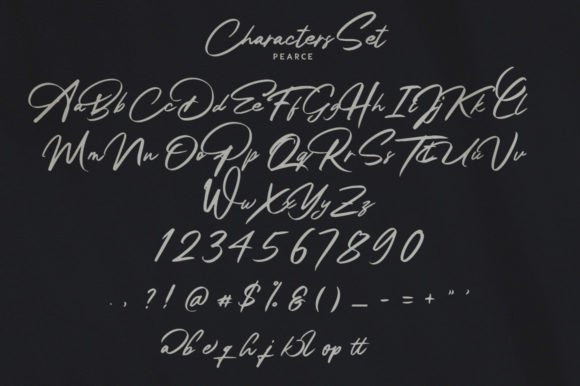 Characters Set
PEARCE
AaBb CcDdEeFfGgHh IiJjKkLl
MmNn OoPp QqRrSsTtUuVv
WwXxYyZz
1234567890
. , ? ! @ # $ % & ( ) _ - = + " '
a b e g h j k l op tt